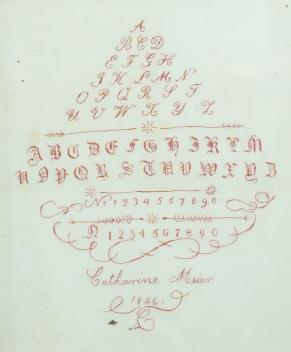 A
BCD
EFGH
IKLMN
OPQRST
UVWXYZ
ABCDEFGHIKLM
NOPQRSTUVWXYZ
No 1234567890
N 1234567890
Catharine Meier
1846.
C